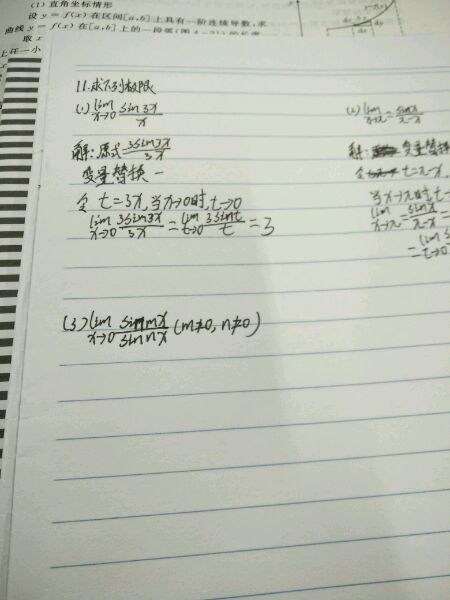 (1) 直角坐标情形
设 y = f(x) 在区间[a,b]上具有一阶连续导数,求
曲线 y = f(x) 在[a,b]上的一段弧
取 x
上任一小
11.求下列极限
(1) lim x→0 sin3x/x
解:原式=3sin3x/3x
变量替换一
令 t=3x,当x→0时,t→0
lim x→0 3sin3x/3x = lim t→0 3sint/t = 3
(2) lim x→π = sinx/π-x
解: 变量替换
令 t=π-x,
当x→π时,t→
lim x→π = sinx/π-x =
= lim t→0
(3) lim x→0 sinmx/sinnx (m≠0, n≠0)